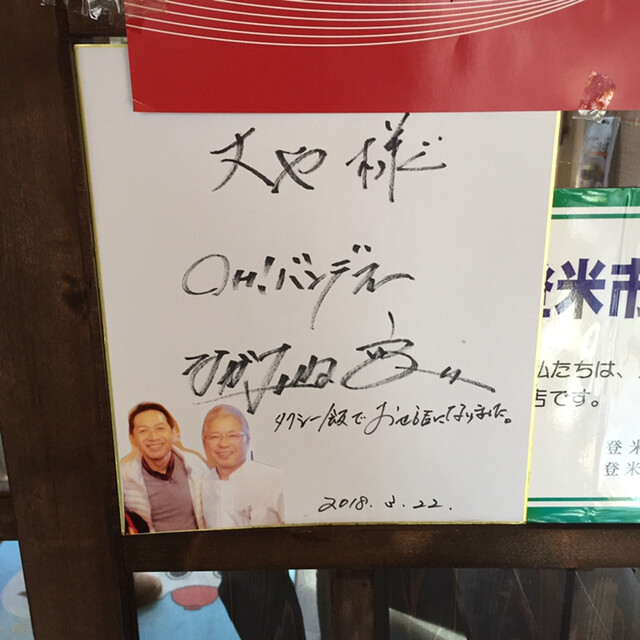 様
OH!バンデス
タクシー飯でお世話になりました。
2018.3.22.
登米市
私たちは、
店です。
登米
登米